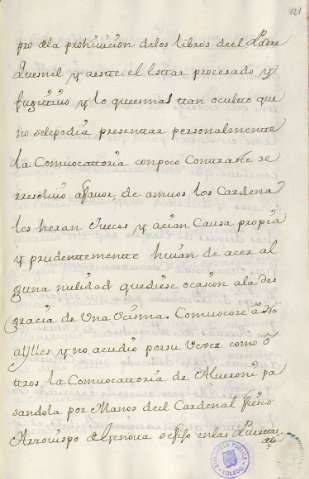 121
pro dela prohivicion delos libros deel Padre
Quesnel y aeste el estar procesado y
fugitivo y lo queesmas tan oculto que
no selepodia presentar personalmente
la Convocattoria conpoco Contraste se
rresolvio afavor, de amvos los Cardena
les heran Jueces y acian Causa propia
y prudentemente huian de acer al
guna nulidad quediese ocasion ala des
gracia de Una Cisma. Comvocose a No
aylles y no acudio porsu Vejez como o
ttros la Convocattoria de Alveroni pa
sandola por Manos deel Cardenal
Arzovispo deGenova sefijo enlas Puertas